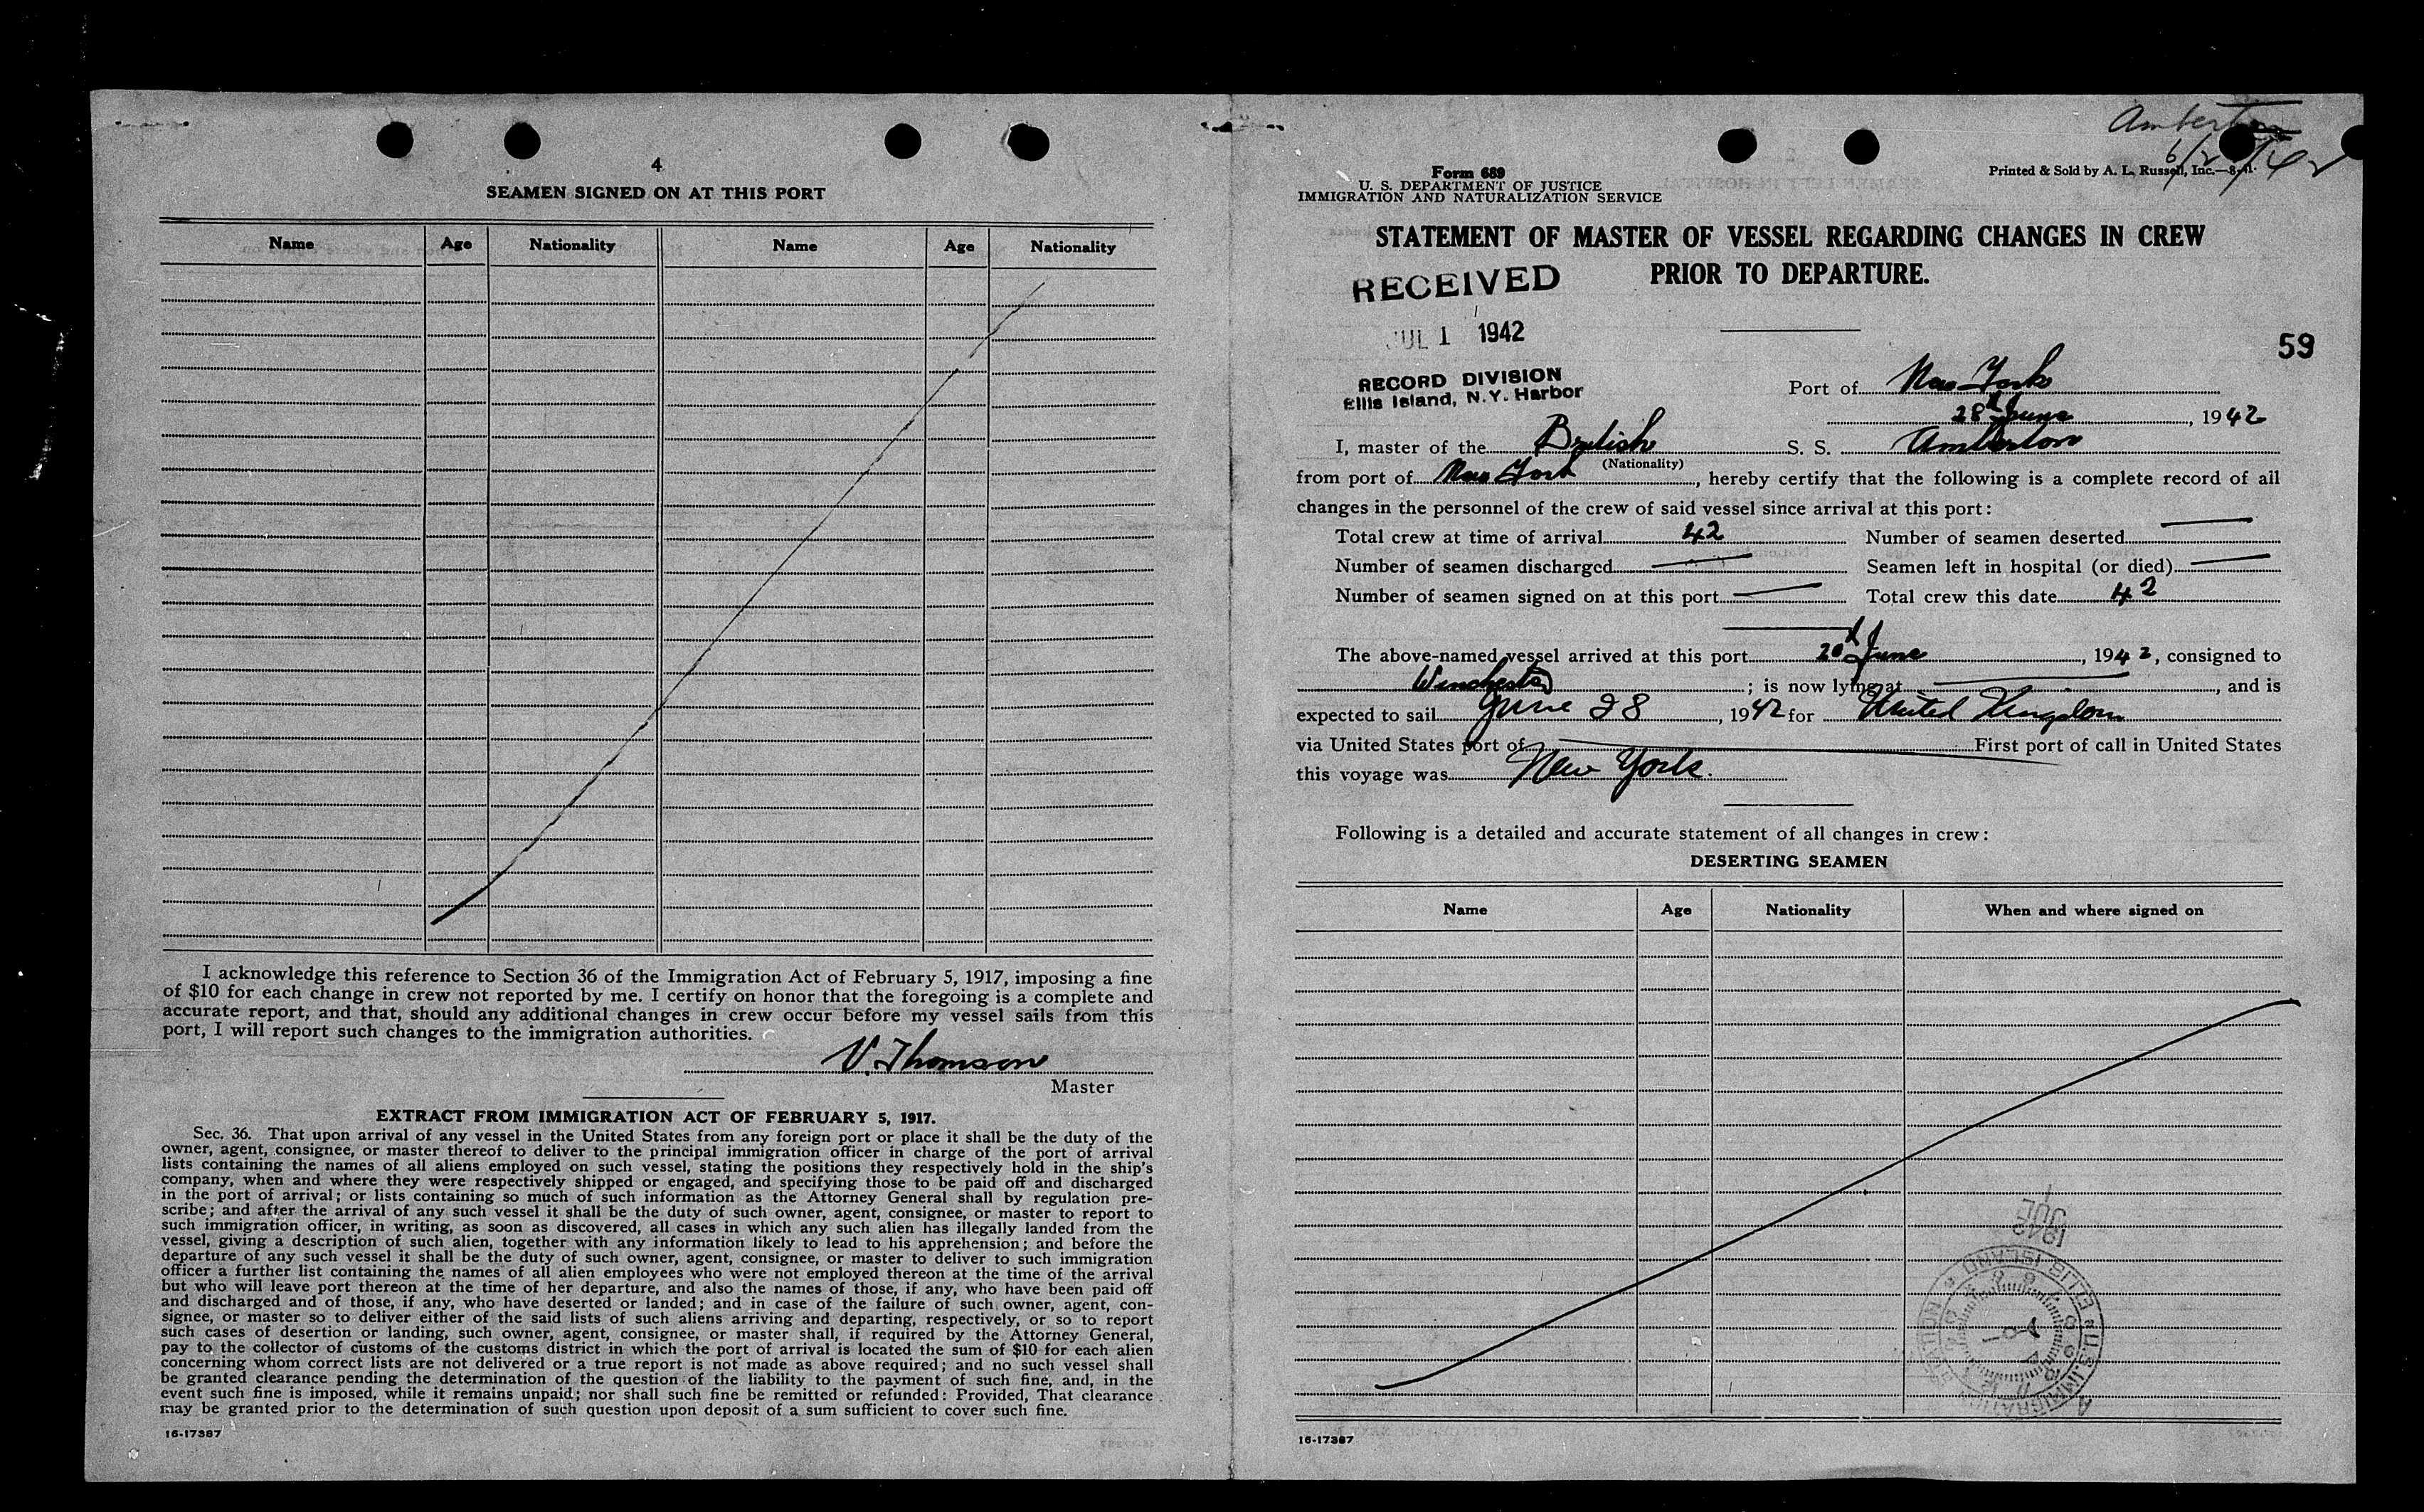 4
SEAMEN SIGNED ON AT THIS PORT
Name Age Nationality Name Age Nationality
I acknowledge this reference to Section 36 of the Immigration Act of February 5, 1917, imposing a fine
of $10 for each change in crew not reported by me. I certify on honor that the foregoing is a complete and
accurate report, and that, should any additional changes in crew occur before my vessel sails from this
port, I will report such changes to the immigration authorities.
V. Thomson
Master
EXTRACT FROM IMMIGRATION ACT OF FEBRUARY 5, 1917.
Sec. 36. That upon arrival of any vessel in the United States from any foreign port or place it shall be the duty of the
owner, agent, consignee, or master thereof to deliver to the principal immigration officer in charge of the port of arrival
lists containing the names of all aliens employed on such vessel, stating the positions they respectively hold in the ship's
company, when and where they were respectively shipped or engaged, and specifying those to be paid off and discharged
in the port of arrival; or lists containing so much of such information as the Attorney General shall by regulation pre-
scribe; and after the arrival of any such vessel it shall be the duty of such owner, agent, consignee, or master to report to
such immigration officer, in writing, as soon as discovered, all cases in which any such alien has illegally landed from the
vessel, giving a description of such alien, together with any information likely to lead to his apprehension; and before the
departure of any such vessel it shall be the duty of such owner, agent, consignee, or master to deliver to such immigration
officer a further list containing the names of all alien employees who were not employed thereon at the time of the arrival
but who will leave port thereon at the time of her departure, and also the names of those, if any, who have been paid off
and discharged and of those, if any, who have deserted or landed; and in case of the failure of such owner, agent, con-
signee, or master so to deliver either of the said lists of such aliens arriving and departing, respectively, or so to report
such cases of desertion or landing, such owner, agent, consignee, or master shall, if required by the Attorney General,
pay to the collector of customs of the customs district in which the port of arrival is located the sum of $10 for each alien
concerning whom correct lists are not delivered or a true report is not made as above required; and no such vessel shall
be granted clearance pending the determination of the question of the liability to the payment of such fine, and, in the
event such fine is imposed, while it remains unpaid; nor shall such fine be remitted or refunded: Provided, That clearance
may be granted prior to the determination of such question upon deposit of a sum sufficient to cover such fine.
16-17387
Amberton
Form 689
U. S. DEPARTMENT OF JUSTICE
IMMIGRATION AND NATURALIZATION SERVICE
Printed & Sold by A. L. Russell, Inc.
STATEMENT OF MASTER OF VESSEL REGARDING CHANGES IN CREW
PRIOR TO DEPARTURE.
RECEIVED
JUL 1 1942
RECORD DIVISION
Ellis Island, N.Y. Harbor
59
Port of New York
28th June, 1942
I, master of the British S. S. Amberton
(Nationality)
from port of New York, hereby certify that the following is a complete record of all
changes in the personnel of the crew of said vessel since arrival at this port:
Total crew at time of arrival 42 Number of seamen deserted
Number of seamen discharged Seamen left in hospital (or died)
Number of seamen signed on at this port Total crew this date 42
The above-named vessel arrived at this port 20th June, 1942, consigned to
Winchester; is now lying at, and is
expected to sail June 28, 1942 for United Kingdom
via United States port of First port of call in United States
this voyage was New York.
Following is a detailed and accurate statement of all changes in crew:
DESERTING SEAMEN
Name Age Nationality When and where signed on
1942
JUL
1
U.S. IMMIGRATION
ELLIS ISLAND
16-17387